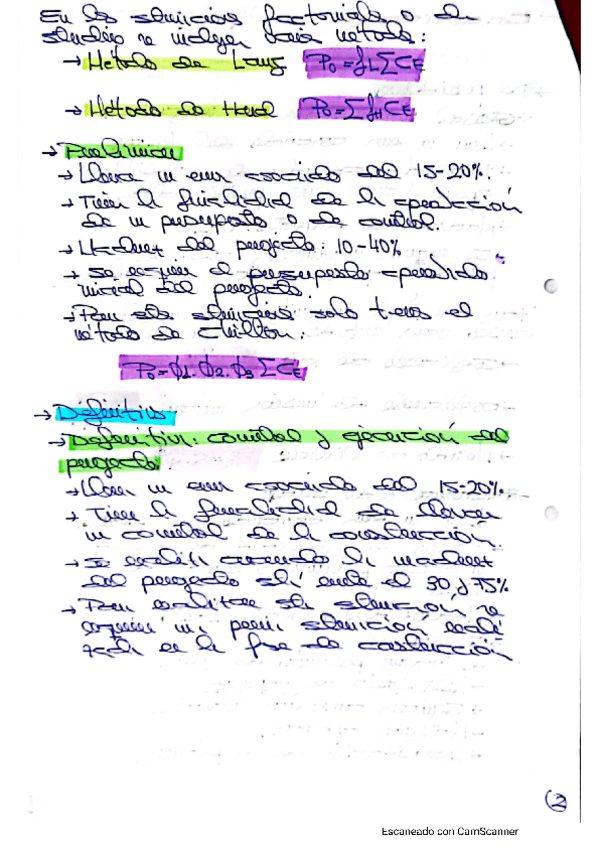 En las estimaciones factoriales o de
estudio se incluyen varios métodos:
→ Método de Lang P₀ = fL ΣCE
→ Método de Hand P₀ = Σ fH CE
→ Preliminar
→ Llevan un error asociado del 15-20%.
→ Tienen la finalidad de la aprobación
de un presupuesto o de control.
→ del proyecto: 10-40%
→ Se requiere el presupuesto aprobado
inicial del proyecto.
→ Para estas estimaciones solo tenemos el
método de Chilton:
P₀ = ϕ1·ϕ2·ϕ3 ΣCE
→ Definitiva
→ Definitiva: control y ejecución del
proyecto.
→ Llevan un error asociado del 15-20%.
→ Tiene la finalidad de llevar
un control de la construcción.
→ Se realiza cuando la
del proyecto está entre el 30 y 75%
→ Para realizar esta estimación se
requiere una previa estimación reali
zada en la fase de construcción
(2)
Escaneado con CamScanner